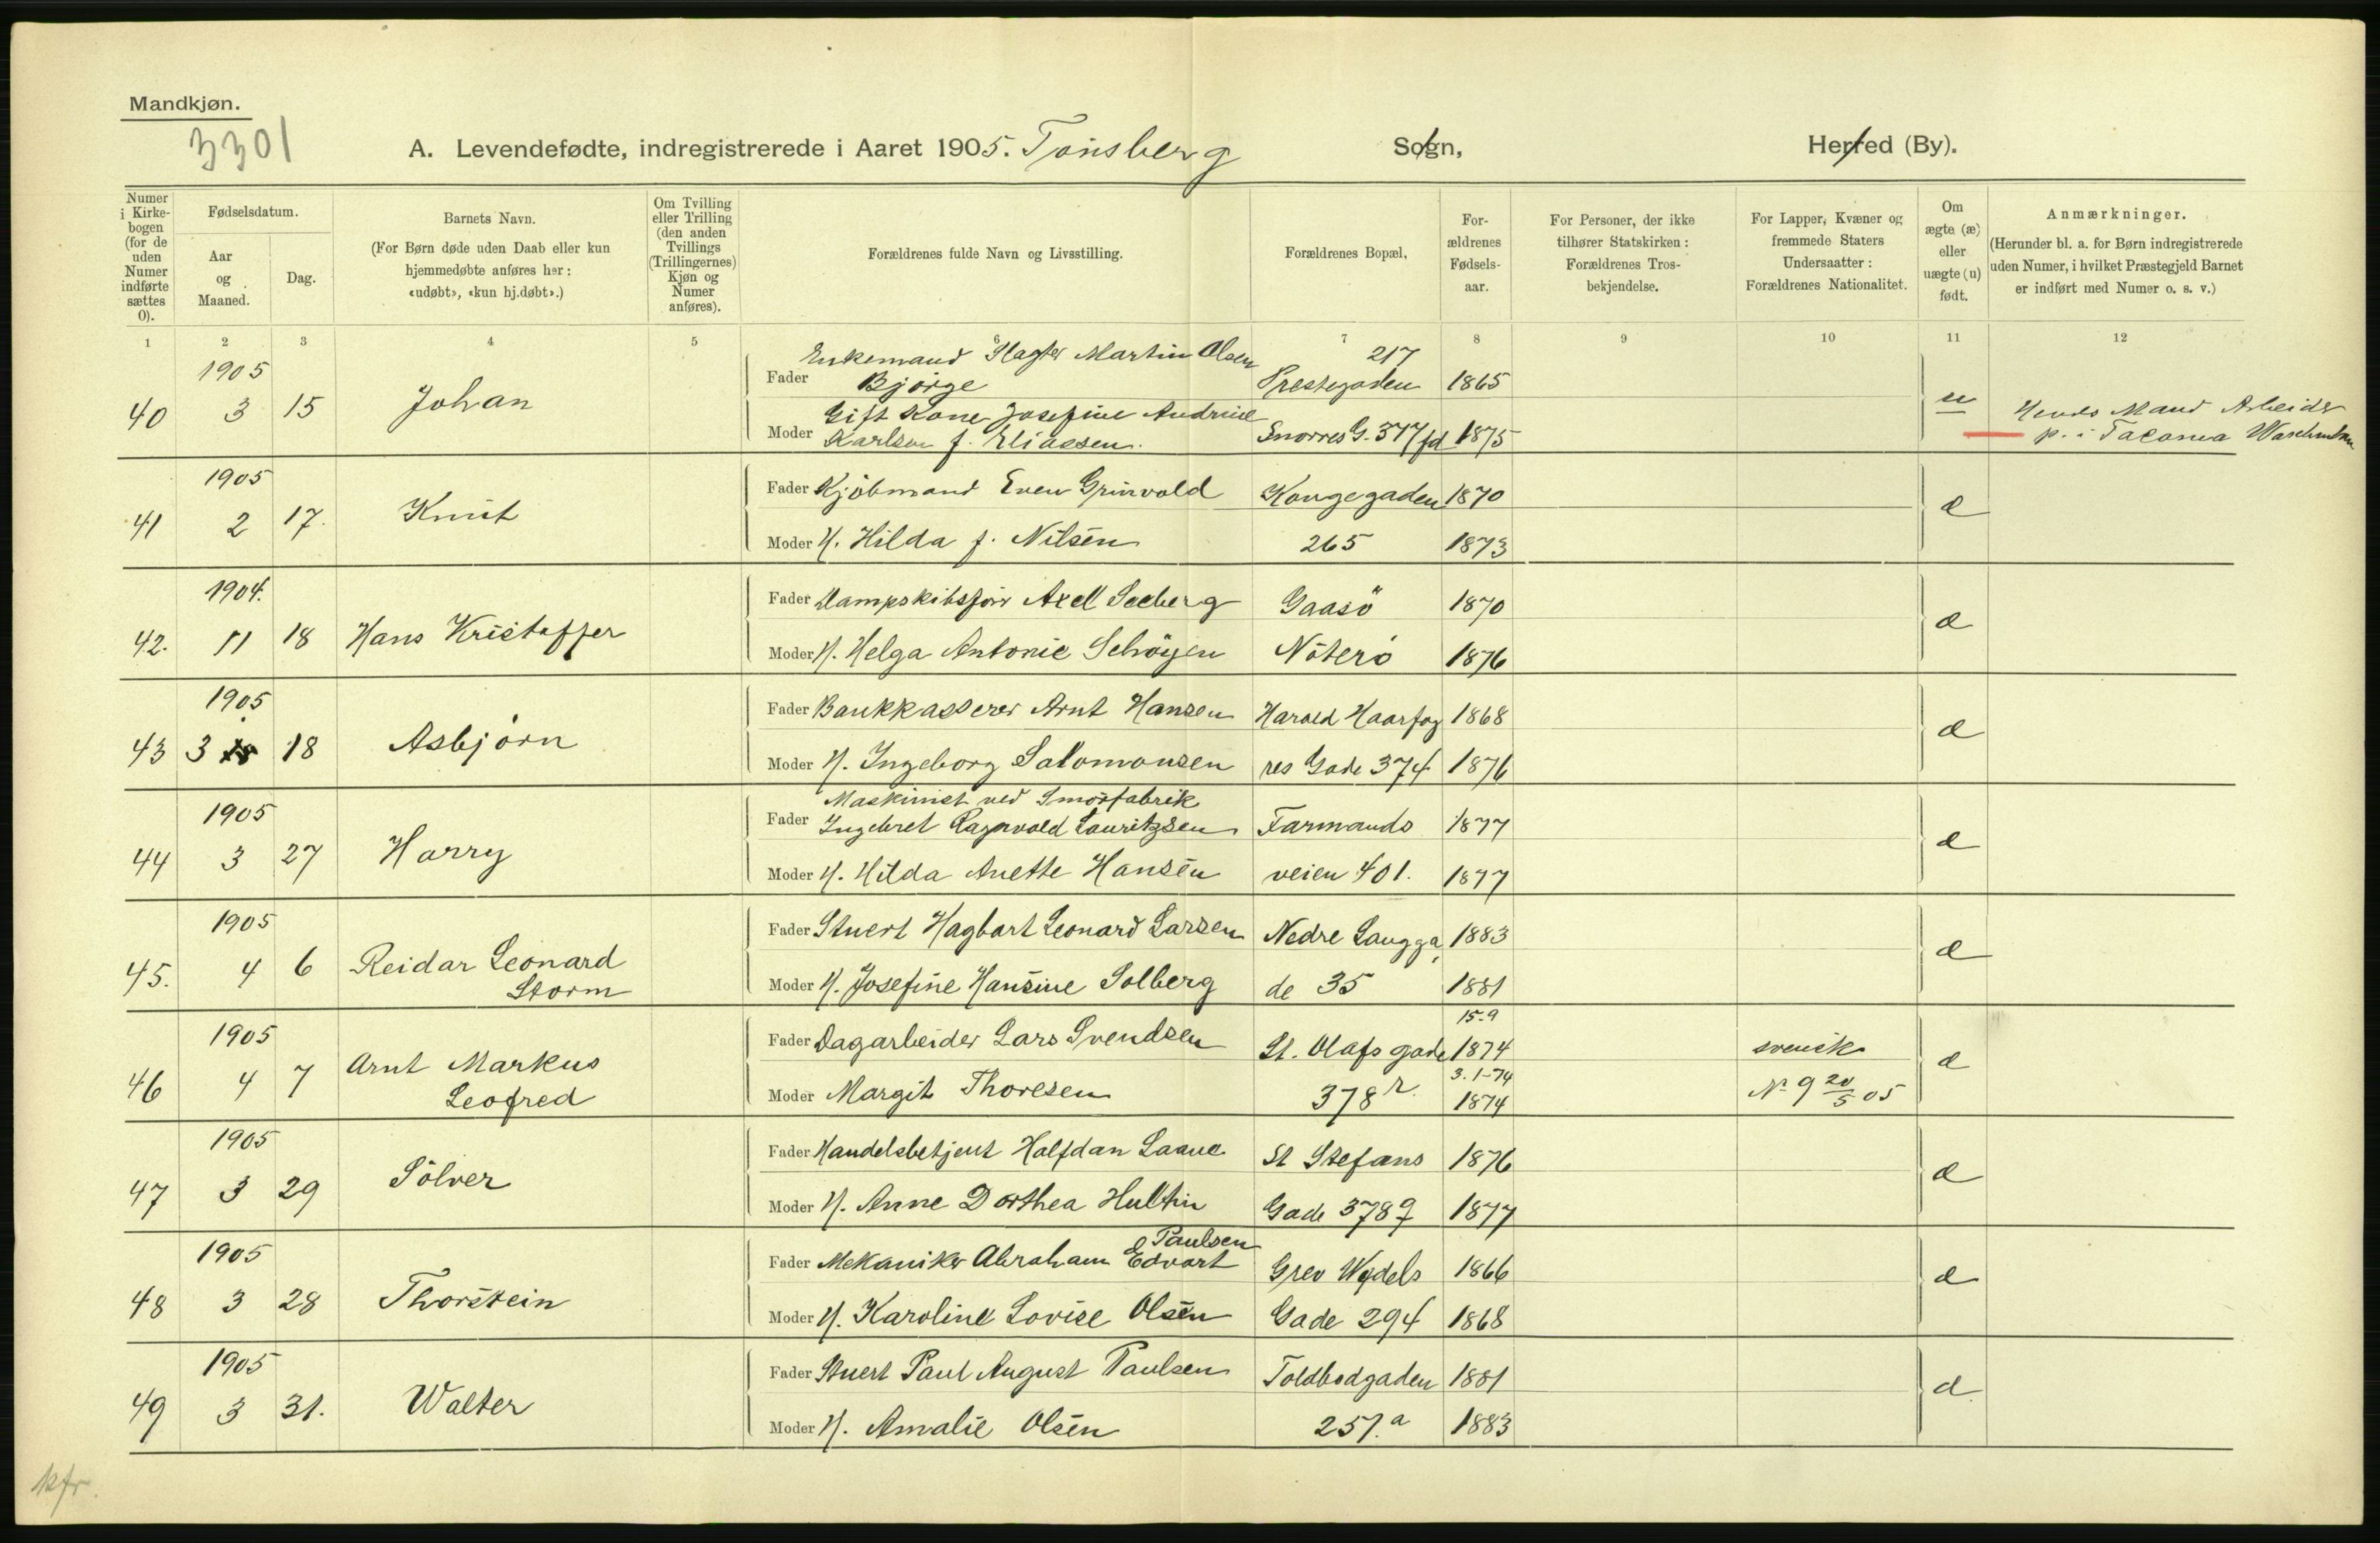 Mandkjøn.
3301
A. Levendefødte, indregistrerede i Aaret 1905. Tönsberg Sogn, Herred (By).
Numer i Kirke-bogen (for de uden Numer indførte sættes 0).
Fødselsdatum.
Aar og Maaned.
Dag.
Barnets Navn.
(For Børn døde uden Daab eller kun
hjemmedøbte anføres her:
«udøbt», «kun hj.døbt».)
Om Tvilling
eller Trilling
(den anden
Tvillings
(Trillingernes)
Kjøn og
Numer
anføres).
Forældrenes fulde Navn og Livsstilling.
Forældrenes Bopæl,
For-
ældrenes
Fødsels-
aar.
For Personer, der ikke
tilhører Statskirken:
Forældrenes Tros-
bekjendelse.
For Lapper, Kvæner og
fremmede Staters
Undersaatter:
Forældrenes Nationalitet.
Om
ægte (æ)
eller
uægte (u)
født.
Anmærkninger.
(Herunder bl. a. for Børn indregistrerede
uden Numer, i hvilket Præstegjeld Barnet
er indført med Numer o. s. v.)
1 2 3 4 5 6 7 8 9 10 11 12
1905
40 3 15 Johan
Fader Enkemand Slagter Martin Olsen
Bjørge
217
Prestegaden 1865
Moder Gift Kone Josefine Andrine
Karlsen f. Eliassen.
Snorres G. 377 fd 1875
u
Hendes Mand Arbeider
p. i Tacoma
1905
41 2 17. Knut
Fader Kjöbmand Even Grinvold Kongegaden 1870
Moder H. Hilda f. Nilsen 265 1873
æ
1904.
42. 11 18 Hans Kristoffer
Fader Dampskibsförer Axel Seeberg Gaasö 1870
Moder H. Helga Antonie Schöyen Nöterö 1876
æ
1905
43 3 18 Asbjörn
Fader Bankkasserer Arnt Hansen Harald Haarfag 1868
Moder H. Ingeborg Salomonsen res Gade 374 1876
æ
1905
44 3 27 Harry
Maskinist ved Smörfabrik
Fader Ingebret Ragnvald Lauritzsen Farmands 1877
Moder H. Hilda Anette Hansen veien 401. 1877
æ
1905
45. 4 6 Reidar Leonard
Storm
Fader Stuert Hagbart Leonard Larsen Nedre Langga 1883
Moder H. Josefine Hansine Solberg de 35 1881
æ
1905
46 4 7 Arnt Markus
Leofred
15-9
Fader Dagarbeider Lars Svendsen St. Olafs gade 1874 svensk
3.1-74
Moder Margit Thoresen 378 r. 1874 No 9 20/5 05
æ
1905
47 3 29 Sölver
Fader Handelsbetjent Halfdan Laane St Stefans 1876
Moder H. Anne Dorthea Hultin Gade 378 g 1877
æ
1905
48 3 28 Thorstein
Paulsen
Fader Mekaniker Abraham Edvart Grev Wedels 1866
Moder H. Karoline Lovise Olsen Gade 294 1868
æ
1905
49 3 31. Walter
Fader Stuert Paul August Paulsen Toldbodgaden 1881
Moder H. Amalie Olsen 257.a 1883
æ
kfr.